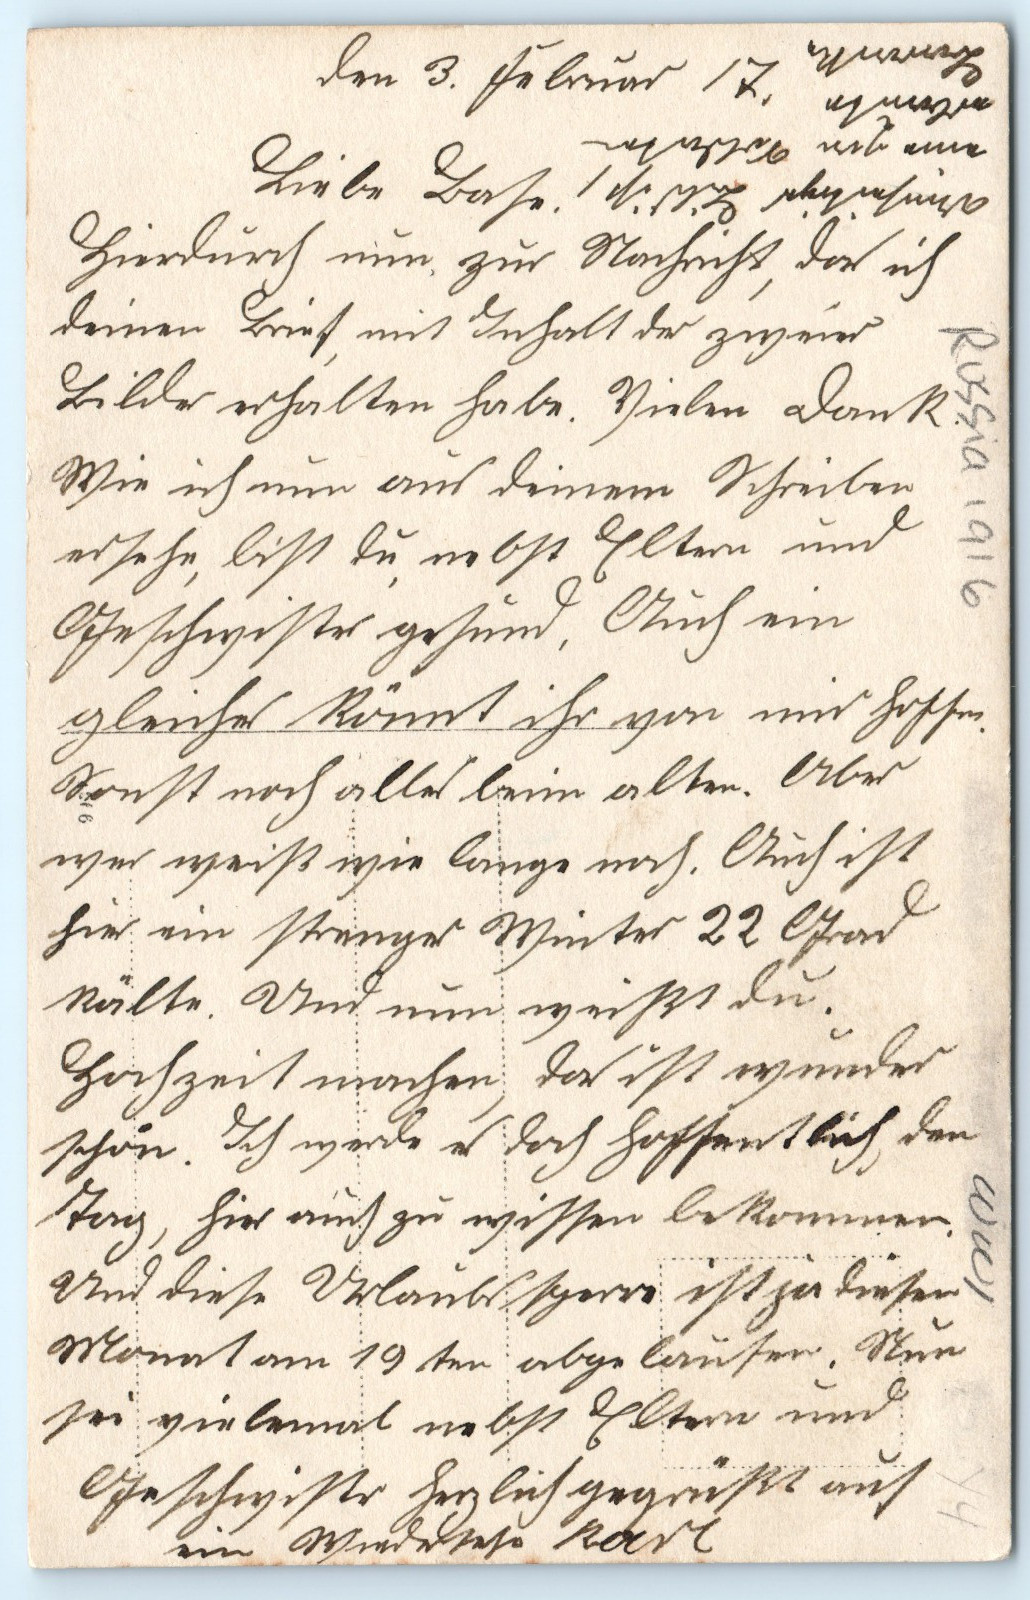 den 3. Februar 17.
Liebe Base!
Hierdurch nun, zur Nachricht, das ich
deinen Brief, mit Inhalt der zweier
Bilder erhalten habe. Vielen Dank.
Wie ich nun aus deinem Schreiben
ersehe, bist du, nebst Eltern und
Geschwister gesund. Auch ein
gleiches könnt ihr von mir hoffen.
Sonst noch alles beim alten. Aber
wer weiß wie lange noch. Auch ist
hier ein strenger Winter 22 Grad
kälte. Und nun weißt du.
Hochzeit machen, das ist wunder
schön. Ich werde es doch hoffentlich, den
Tag, hier auch zu wissen bekommen.
Und diese Urlaubssperre ist ja diesen
Monat am 19 ten abgelaufen. Nun
sei vielemal nebst Eltern und
Geschwister herzlich gegrüßt auf
ein Wiedersehe Karl
Russia 1916
WW1